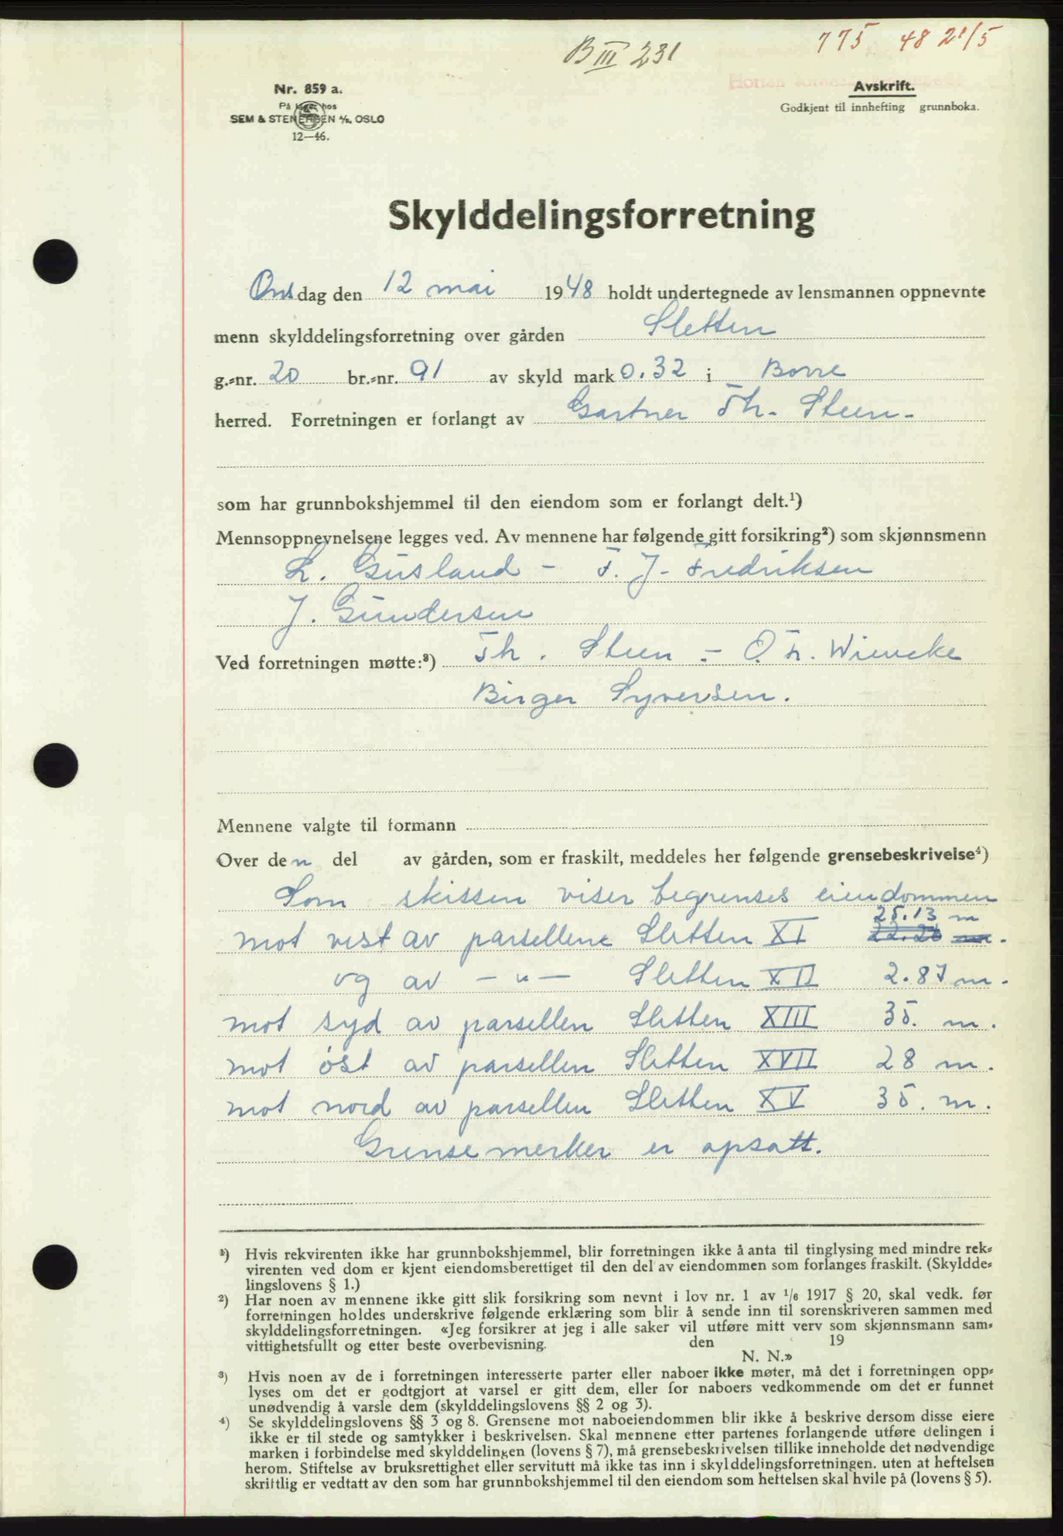 775 48 21/5
B III 231
Nr. 859 a.
På lager hos
SEM & STENERSEN A/S, OSLO
12—46.
Avskrift.
Godkjent til innhefting grunnboka.
Skylddelingsforretning
Onsdag den 12 mai 1948 holdt undertegnede av lensmannen oppnevnte
menn skylddelingsforretning over gården Sletten
g.-nr. 20 br.-nr. 91 av skyld mark 0.32 i Borre
herred. Forretningen er forlangt av Gartner Th. Steen.
som har grunnbokshjemmel til den eiendom som er forlangt delt.¹)
Mennsoppnevnelsene legges ved. Av mennene har følgende gitt forsikring²) som skjønnsmenn
L. Gusland - F. J. Fredriksen
J. Gundersen
Ved forretningen møtte:³) Th. Steen - O. Th. Wiencke
Birger Syversen.
Mennene valgte til formann
Over den del av gården, som er fraskilt, meddeles her følgende grensebeskrivelse⁴)
Som skissen viser begrenses eiendommen
mot vest av parsellene Sletten XI 25.13 m.
og av — " — Sletten XII 2.87 m.
mot syd av parsellen Sletten XIII 35. m.
mot øst av parsellen Sletten XVII 28 m.
mot nord av parsellen Sletten XV 35. m.
Grensemerker er opsatt.
¹) Hvis rekvirenten ikke har grunnbokshjemmel, blir forretningen ikke å anta til tinglysing med mindre rek-
virenten ved dom er kjent eiendomsberettiget til den del av eiendommen som forlanges fraskilt. (Skyldde-
lingslovens § 1.)
²) Har noen av mennene ikke gitt slik forsikring som nevnt i lov nr. 1 av 1/6 1917 § 20, skal vedk. før
forretningen holdes underskrive følgende erklæring som blir å sende inn til sorenskriveren sammen med
skylddelingsforretningen. «Jeg forsikrer at jeg i alle saker vil utføre mitt verv som skjønnsmann sam-
vittighetsfullt og etter beste overbevisning. den 19
N. N.»
³) Hvis noen av de i forretningen interesserte parter eller naboer ikke møter, må det i forretningen opp-
lyses om det er godtgjort at varsel er gitt dem, eller for naboers vedkommende om det er funnet
unødvendig å varsle dem (skylddelingslovens §§ 2 og 3).
⁴) Se skylddelingslovens §§ 3 og 8. Grensene mot naboeiendommen blir ikke å beskrive dersom disse eiere
ikke er til stede og samtykker i beskrivelsen. Skal mennene etter partenes forlangende utføre delingen i
marken i forbindelse med skylddelingen (lovens § 7), må grensebeskrivelsen tillike inneholde det nødvendige
herom. Stiftelse av bruksrettighet eller servitutt må ikke tas inn i skylddelingsforretningen, uten at heftelsen
skriftlig er vedtatt av den som har grunnbokshjemmel til den eiendom som heftelsen skal hvile på (lovens § 5).